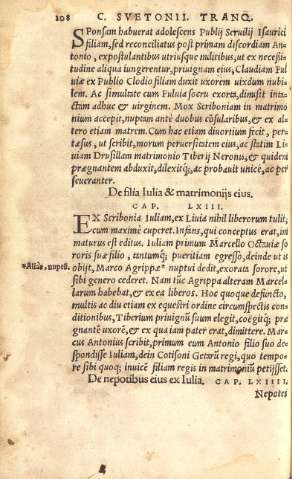 108 C. SVETONII. TRANQ.
SPonsam habuerat adolescens Publij Seruilij Isaurici
filiam, sed reconciliatus post primam discordiam An
tonio, expostulantibus utriusque militibus, ut ex necessi
tudine aliqua iungerentur, priuignam eius, Claudiam Ful
uiæ ex Publio Clodio filiam duxit uxorem uixdum nubi-
lem. Ac simultate cum Fuluia socru exorta, dimisit int-
actam adhuc & uirginem. Mox Scriboniam in matrimo
nium accepit, nuptam ante duobus cōsularibus, & ex al-
tero etiam matrem. Cum hac etiam diuortium fecit, per-
tæsus, ut scribit, morum peruersitatem eius, ac statim Li-
uiam Drusillam matrimonio Tiberij Neronis, & quidem
prægnantem abduxit, dilexitq;, ac probauit unice, ac per
seueranter.
De filia Iulia & matrimonijs eius.
CAP. LXIII.
EX Scribonia Iuliam, ex Liuia nihil liberorum tulit,
cum maxime cuperet. Infans, qui conceptus erat, im
maturus est editus. Iuliam primum Marcello Octauiæ so
roris suæ filio, tantumq; pueritiam egresso, deinde ut is
obijt, Marco Agrippæ nuptui dedit, exorata sorore, ut
sibi genero cederet. Nam tūc Agrippa alteram Marcel-
larum habebat, & ex ea liberos. Hoc quoque defuncto,
multis ac diu etiam ex equestri ordine circumspectis con
ditionibus, Tiberium priuignū suum elegit, coëgitq; præ
gnantē uxorē, & ex qua iam pater erat, dimittere. Mar
cus Antonius scribit, primum eum Antonio filio suo de-
spondisse Iuliam, dein Cotisoni Getarū regi, quo tempo
re sibi quoq; inuicē filiam regis in matrimoniū petijsset.
De nepotibus eius ex Iulia. CAP. LXIIII.
Nepotes